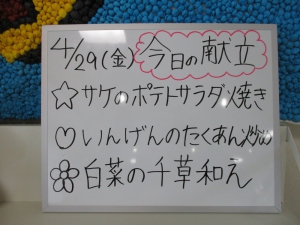 4/29(金) 今日の献立
☆サケのポテトサラダ焼き
♡いんげんのたくあん炒め
白菜の千草和え